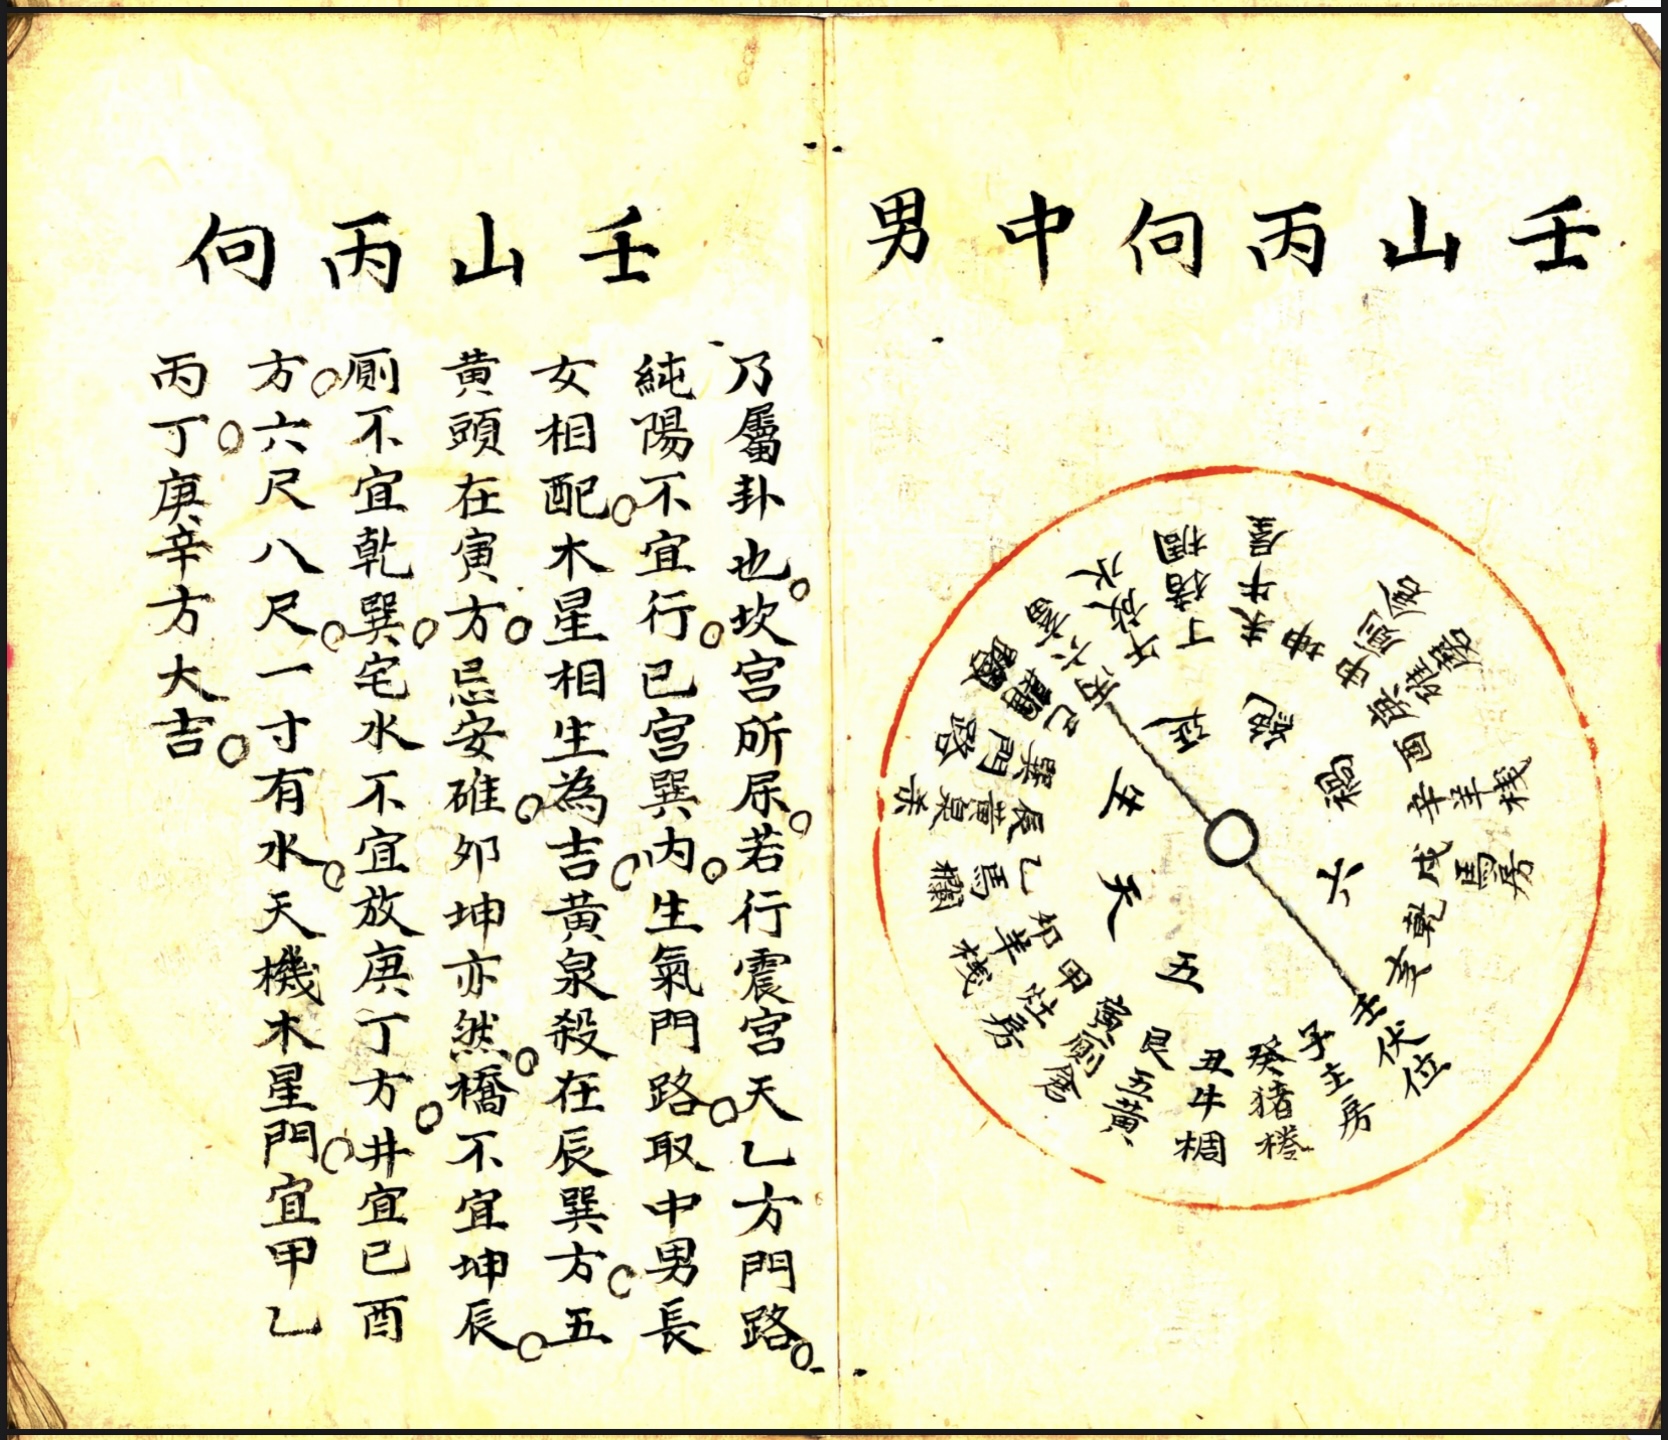 壬山丙向中男
壬伏位
子主房
癸猪棬
丑牛椆
艮五黃
寅厠倉
甲灶房
卯羊栈
乙馬欄
辰黃泉杀
巽門路
巳
丙六畜
午放水
丁猪椆
未牛屋
坤
申厠
庚
酉
辛羊栈
戌馬房
乾
亥
五
天
生
延
絕
禍
六
壬山丙向
乃屬卦也坎宫所屎若行震宫天乙方門路
純陽不宜行已宫巽内生氣門路取中男長
女相配木星相生為吉黄泉殺在辰巽方五
黄頭在寅方忌安碓夘坤亦然橋不宜坤辰
厠不宜乾巽宅水不宜放庚丁方井宜已酉
方六尺八尺一寸有水天機木星門宜甲乙
丙丁庚辛方大吉